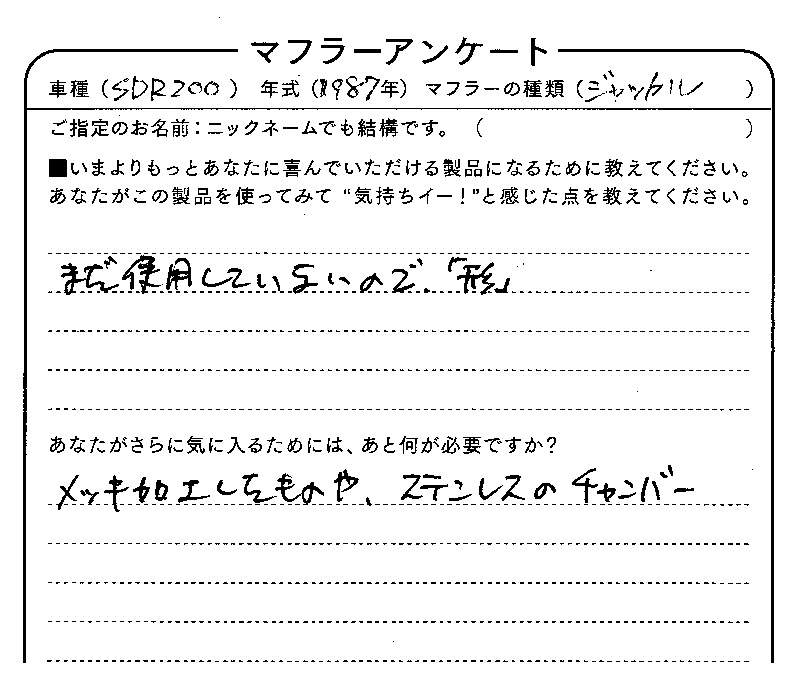 マフラーアンケート
車種（SDR200） 年式（1987年）マフラーの種類（ジャッカル ）
ご指定のお名前：ニックネームでも結構です。（ ）
■いまよりもっとあなたに喜んでいただける製品になるために教えてください。
あなたがこの製品を使ってみて“気持ちイー！”と感じた点を教えてください。
まだ使用していないので、「形」
あなたがさらに気に入るためには、あと何が必要ですか？
メッキ加工したものや、ステンレスのチャンバー